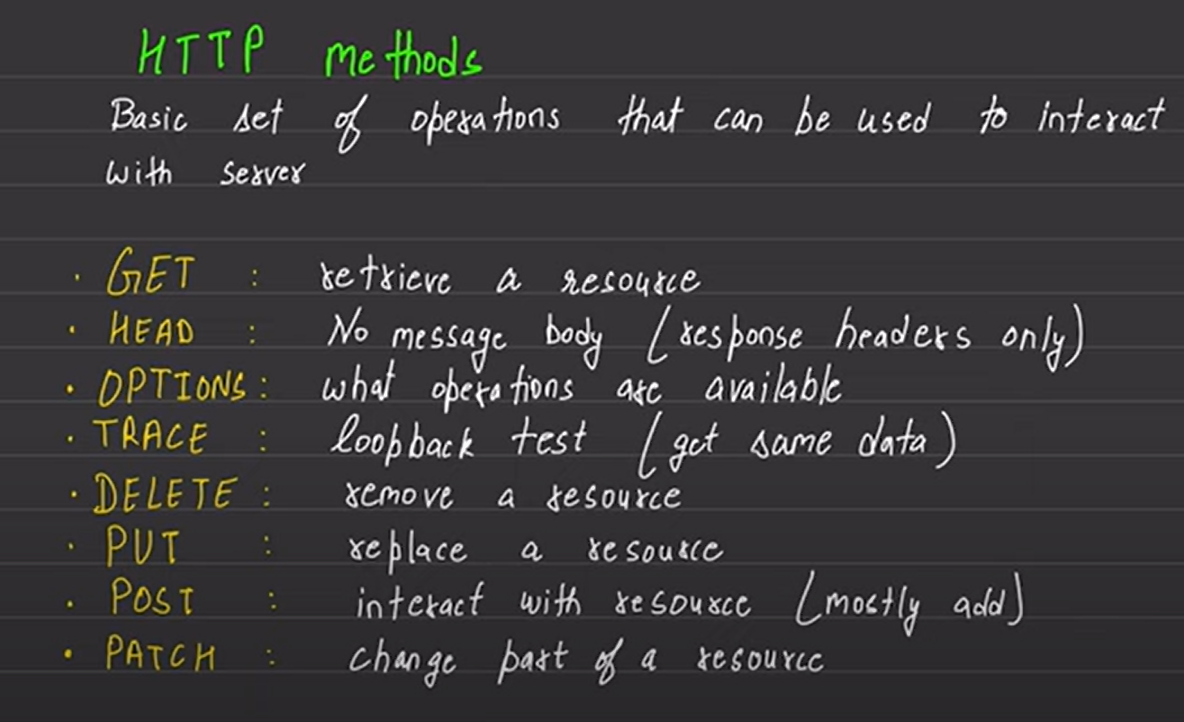 HTTP Methods
Basic set of operations that can be used to interact
with server
· GET : retrieve a resource
· HEAD : No message body (response headers only)
· OPTIONS : what operations are available
· TRACE : loopback test (get same data)
· DELETE : remove a resource
· PUT : replace a resource
· POST : interact with resource (mostly add)
· PATCH : change part of a resource